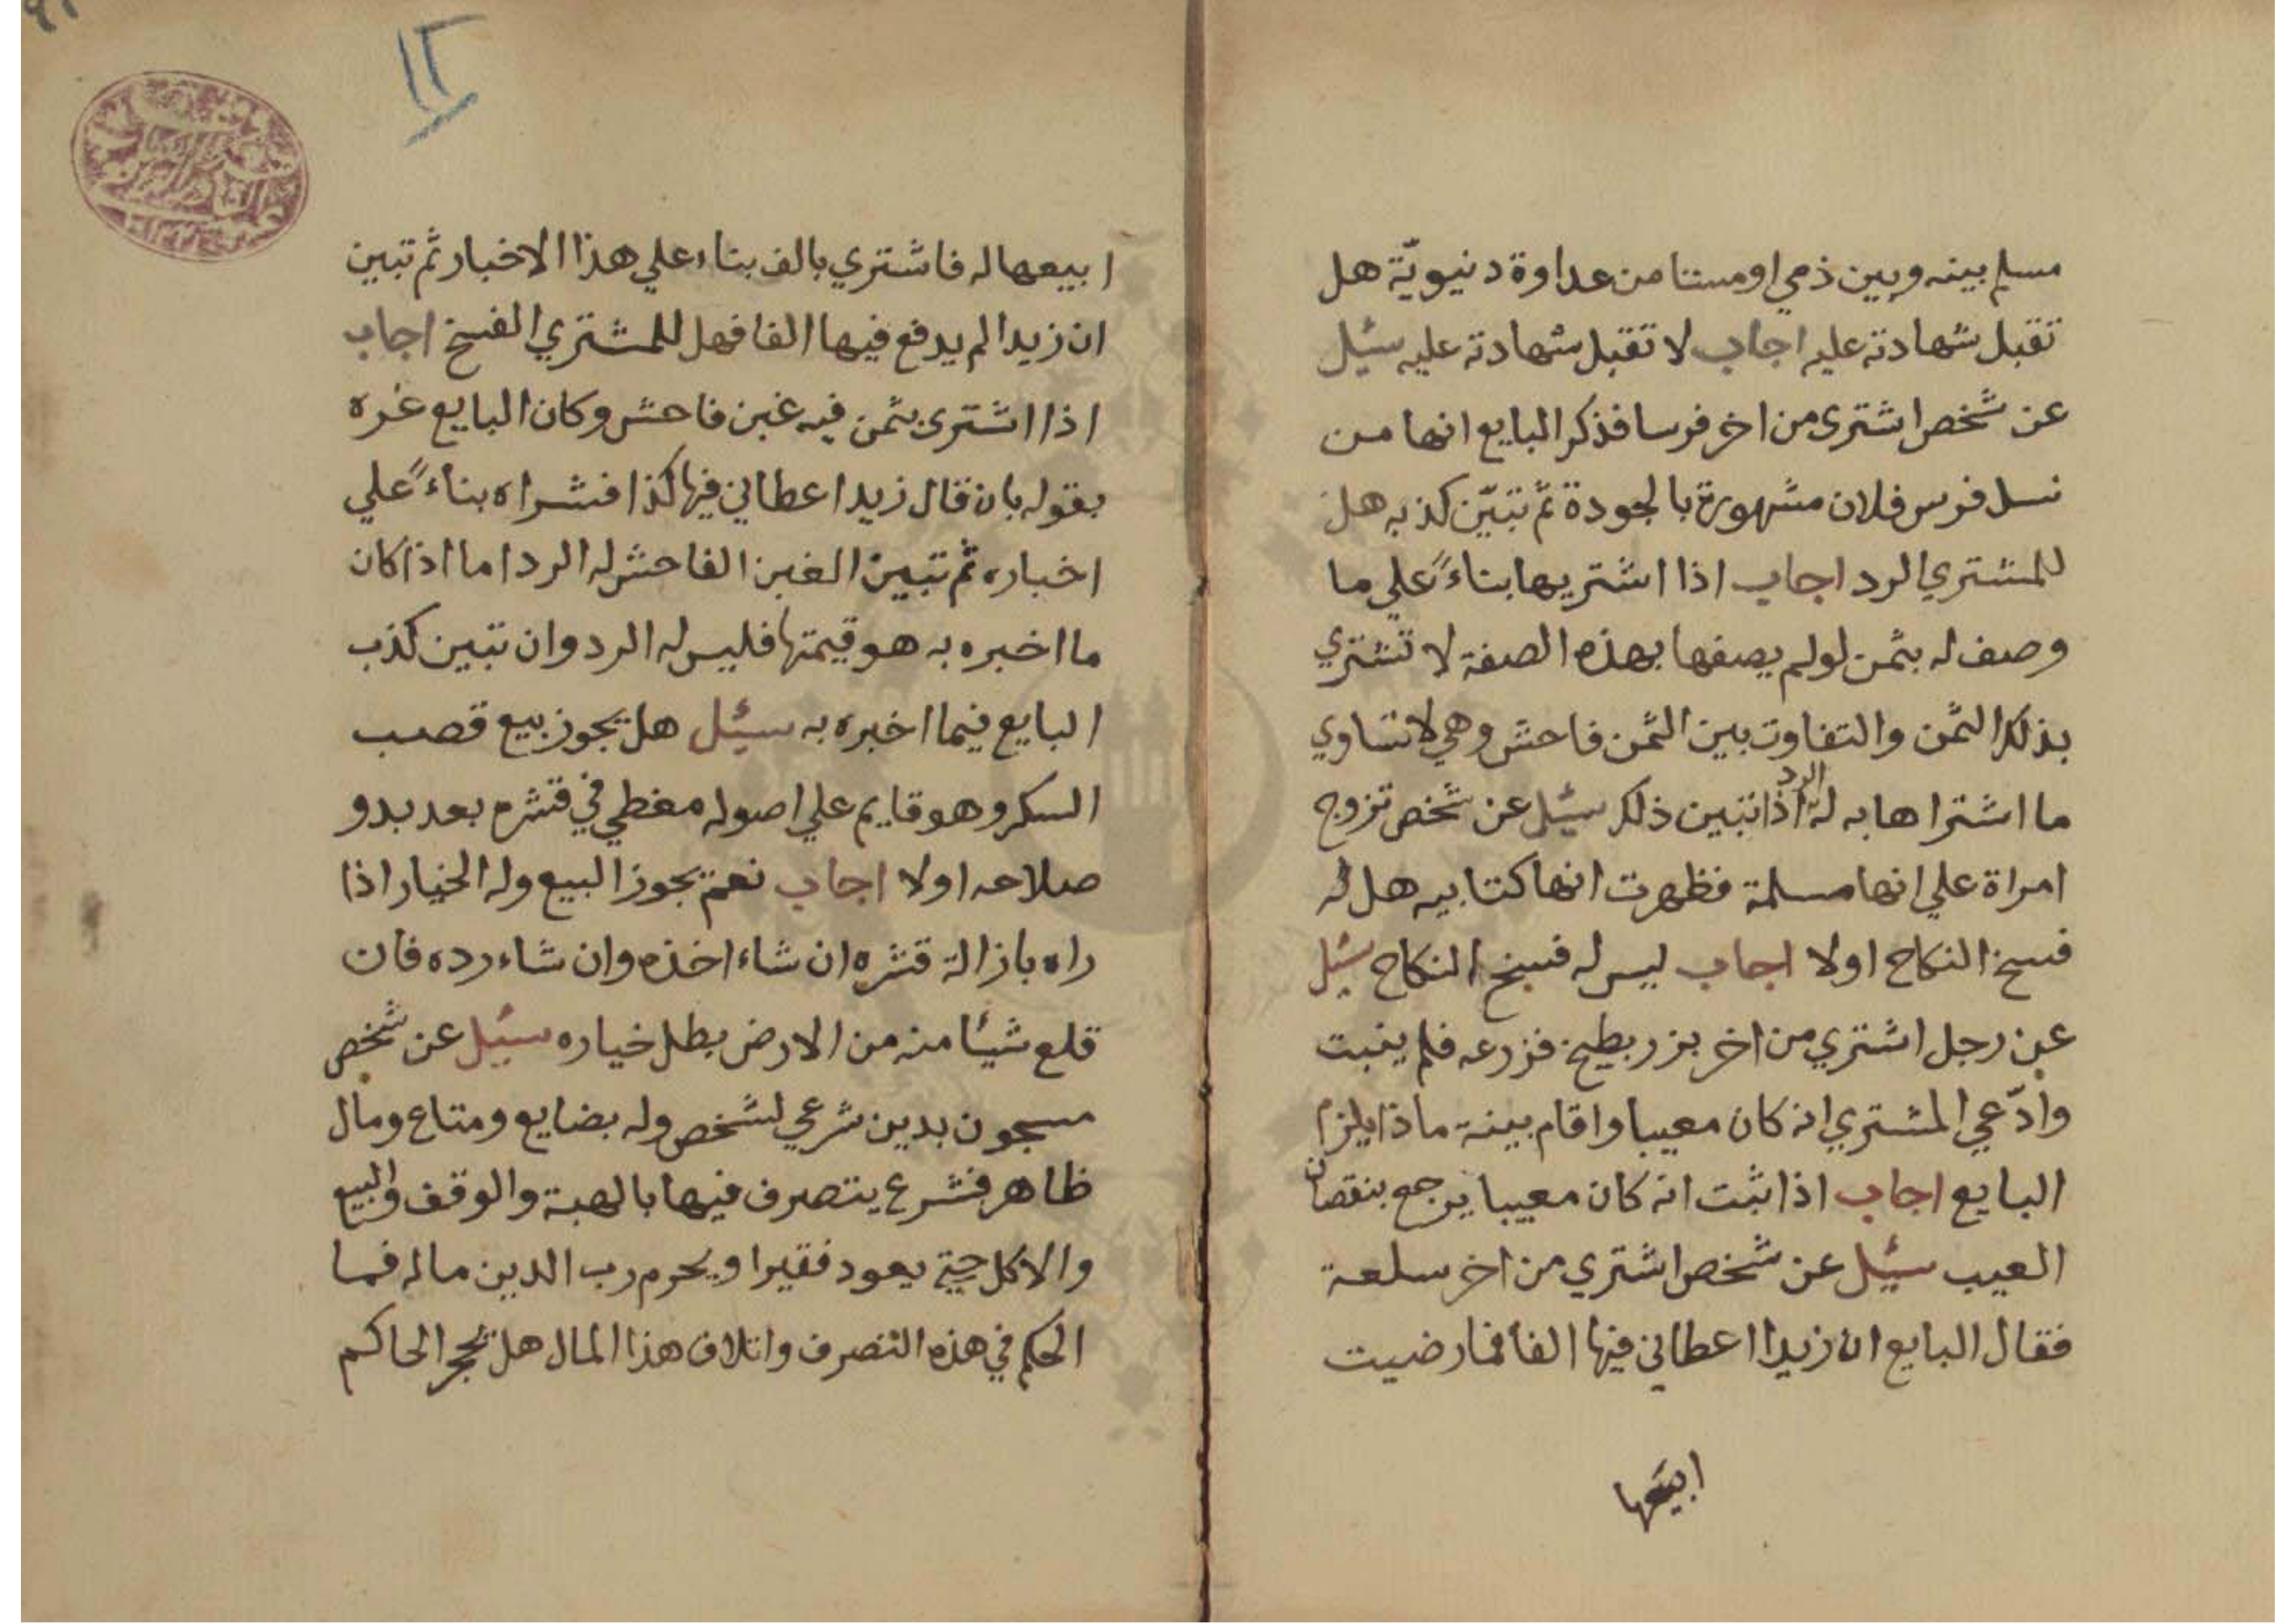 مسلم بينه وبين ذمي او مستامن عداوة دنيويّة هل
تقبل شهادته عليه اجاب لا تقبل شهادته عليه سئيل
عن شخص اشترى من اخر فرسا فذكر البايع انها من
نسل فرس فلان مشهورة بالجودة ثم تبيّن كذبه هل
للمشتري الرد اجاب اذا اشتريها بناءً علي ما
وصف له بثمن لو لم يصفها بهذه الصفة لا تشتري
بذلك الثمن والتفاوت بين الثمن فاحش وهي لا تساوي
ما اشتراها به له الرد اذا تبين ذلك سئيل عن شخص تزوج
امراة علي انها مسلمة فظهرت انها كتابيه هل له
فسخ النكاح اولا اجاب ليس له فسخ النكاح سئيل
عن رجل اشتري من اخر بزر بطيخ فزرعه فلم ينبت
وادّعي المشتري انه كان معيبا واقام بينة ماذا يلزم
البايع اجاب اذا ثبت انه كان معيبا يرجع بنقصان
العيب سئيل عن شخص اشتري من اخر سلعة
فقال البايع ان زيدا اعطاني فيها الفا فما رضيت
ابيعها
١٢
ابيعها له فاشتري بالف بناء علي هذا الاخبار ثم تبين
ان زيدا لم يدفع فيها الفا فهل للمشتري الفسخ اجاب
اذا اشترى بثمن فيه غبن فاحش وكان البايع غره
بقوله بان قال زيد اعطاني فيها كذا فشراه بناءً علي
اخباره ثم تبين الغبن الفاحش له الرد اما اذا كان
ما اخبره به هو قيمتها فليس له الرد وان تبين كذب
البايع فيما اخبره به سئيل هل يجوز بيع قصب
السكر وهو قايم علي اصوله مغطي في قشره بعد بدو
صلاحه اولا اجاب نعم يجوز البيع وله الخيار اذا
راه بازالة قشره ان شاء اخذه وان شاء رده فان
قلع شيئا منه من الارض بطل خياره سئيل عن شخص
مسجون بدين شرعي لشخص وله بضايع ومتاع ومال
ظاهر فشرع يتصرف فيها بالهبة والوقف والبيع
والاكل حتي يعود فقيرا ويحرم رب الدين ماله فما
الحكم في هذه التصرف واتلاف هذا المال هل يحجر الحاكم